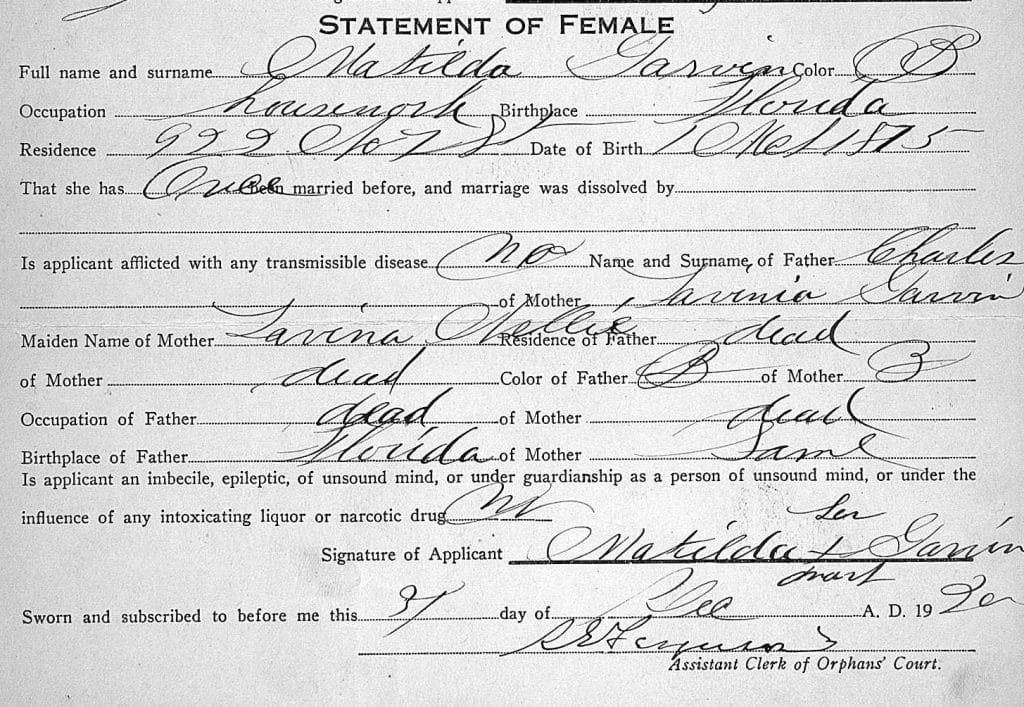 STATEMENT OF FEMALE
Full name and surname Matilda Garvin Color B
Occupation housework Birthplace Florida
Residence 922 No 7 St Date of Birth 1875
That she has Once Been married before, and marriage was dissolved by
Is applicant afflicted with any transmissible disease no Name and Surname of Father Charles
of Mother Lavinia Garvin
Maiden Name of Mother Lavina Nellie Residence of Father dead
of Mother dead Color of Father B of Mother B
Occupation of Father dead of Mother dead
Birthplace of Father Florida of Mother Same
Is applicant an imbecile, epileptic, of unsound mind, or under guardianship as a person of unsound mind, or under the
influence of any intoxicating liquor or narcotic drug no
her
Signature of Applicant Matilda + Garvin
mark
Sworn and subscribed to before me this 31 day of Dec A. D. 19 20
Ferguson
Assistant Clerk of Orphans' Court.